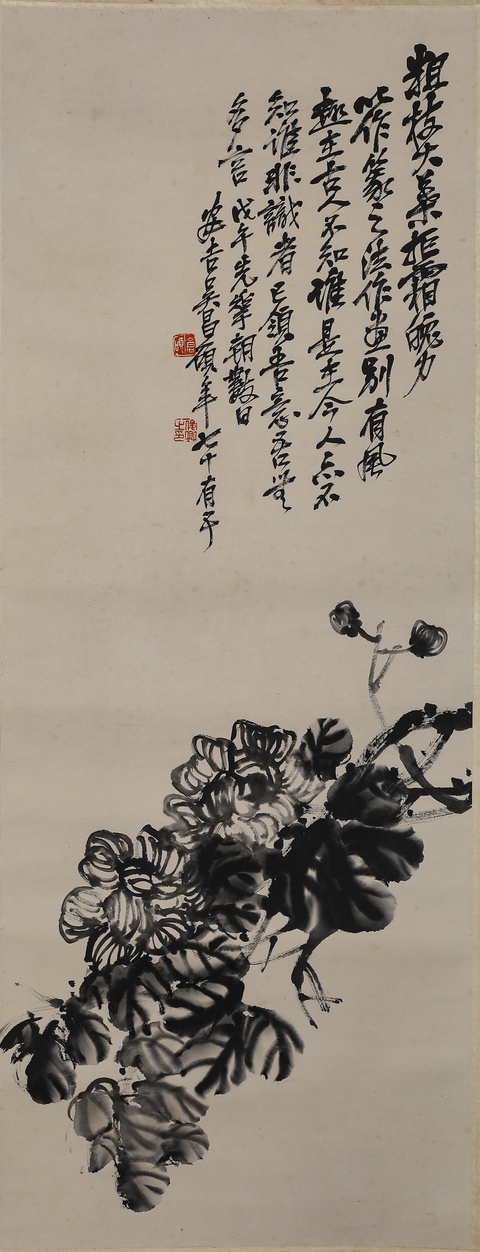 粗枝大葉拒霜魄力
以作篆之法作畫別有風
趣在古人不知誰是在今人亦不
知誰非識者已領吾意吾無
多言 戊午先華朝數日
安吉吳昌碩年七十有五
俊卿之印